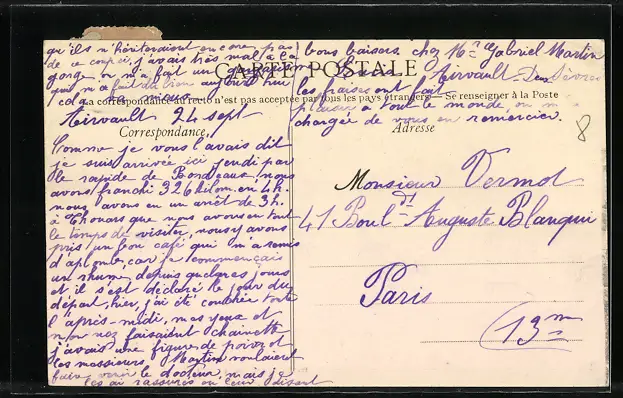 qu'ils n'hésiteraient encore pas
de ce coup ci, j'avais très mal à la
gorge on m'a fait un
qui m'a fait du bien aujourd'hui
cela va mieux
bons baisers. chez Mr Gabriel Martin
Airvault - Deux Sèvres
les fraises ont fait
plaisir à tout le monde, on m'a
chargée de vous en remercier.
CARTE POSTALE
La correspondance au recto n'est pas acceptée par tous les pays étrangers — Se renseigner à la Poste
Correspondance
Adresse
Airvault 24 sept
Comme je vous l'avais dit
je suis arrivée ici jeudi par
le rapide de Bordeaux nous
avons franchi 326 kilom. en 4h.
nous avons eu un arrêt de 3h.
à Thouars que nous avons eu tout
le temps de visiter, nous y avons
pris un bon café qui m'a remis
d'aplomb, car je commençais
un rhume, depuis quelques jours
et il s'est déclaré le jour du
départ, hier, j'ai été couchée toute
l'après-midi, mes yeux et
mon nez faisaient chainette
j'avais une figure de poivrot
les messieurs Martin voulaient
faire venir le docteur, mais je
les ai rassurés en leur disant
8
Monsieur Vermot
41 Boul-dt Auguste Blanqui
Paris
(13me